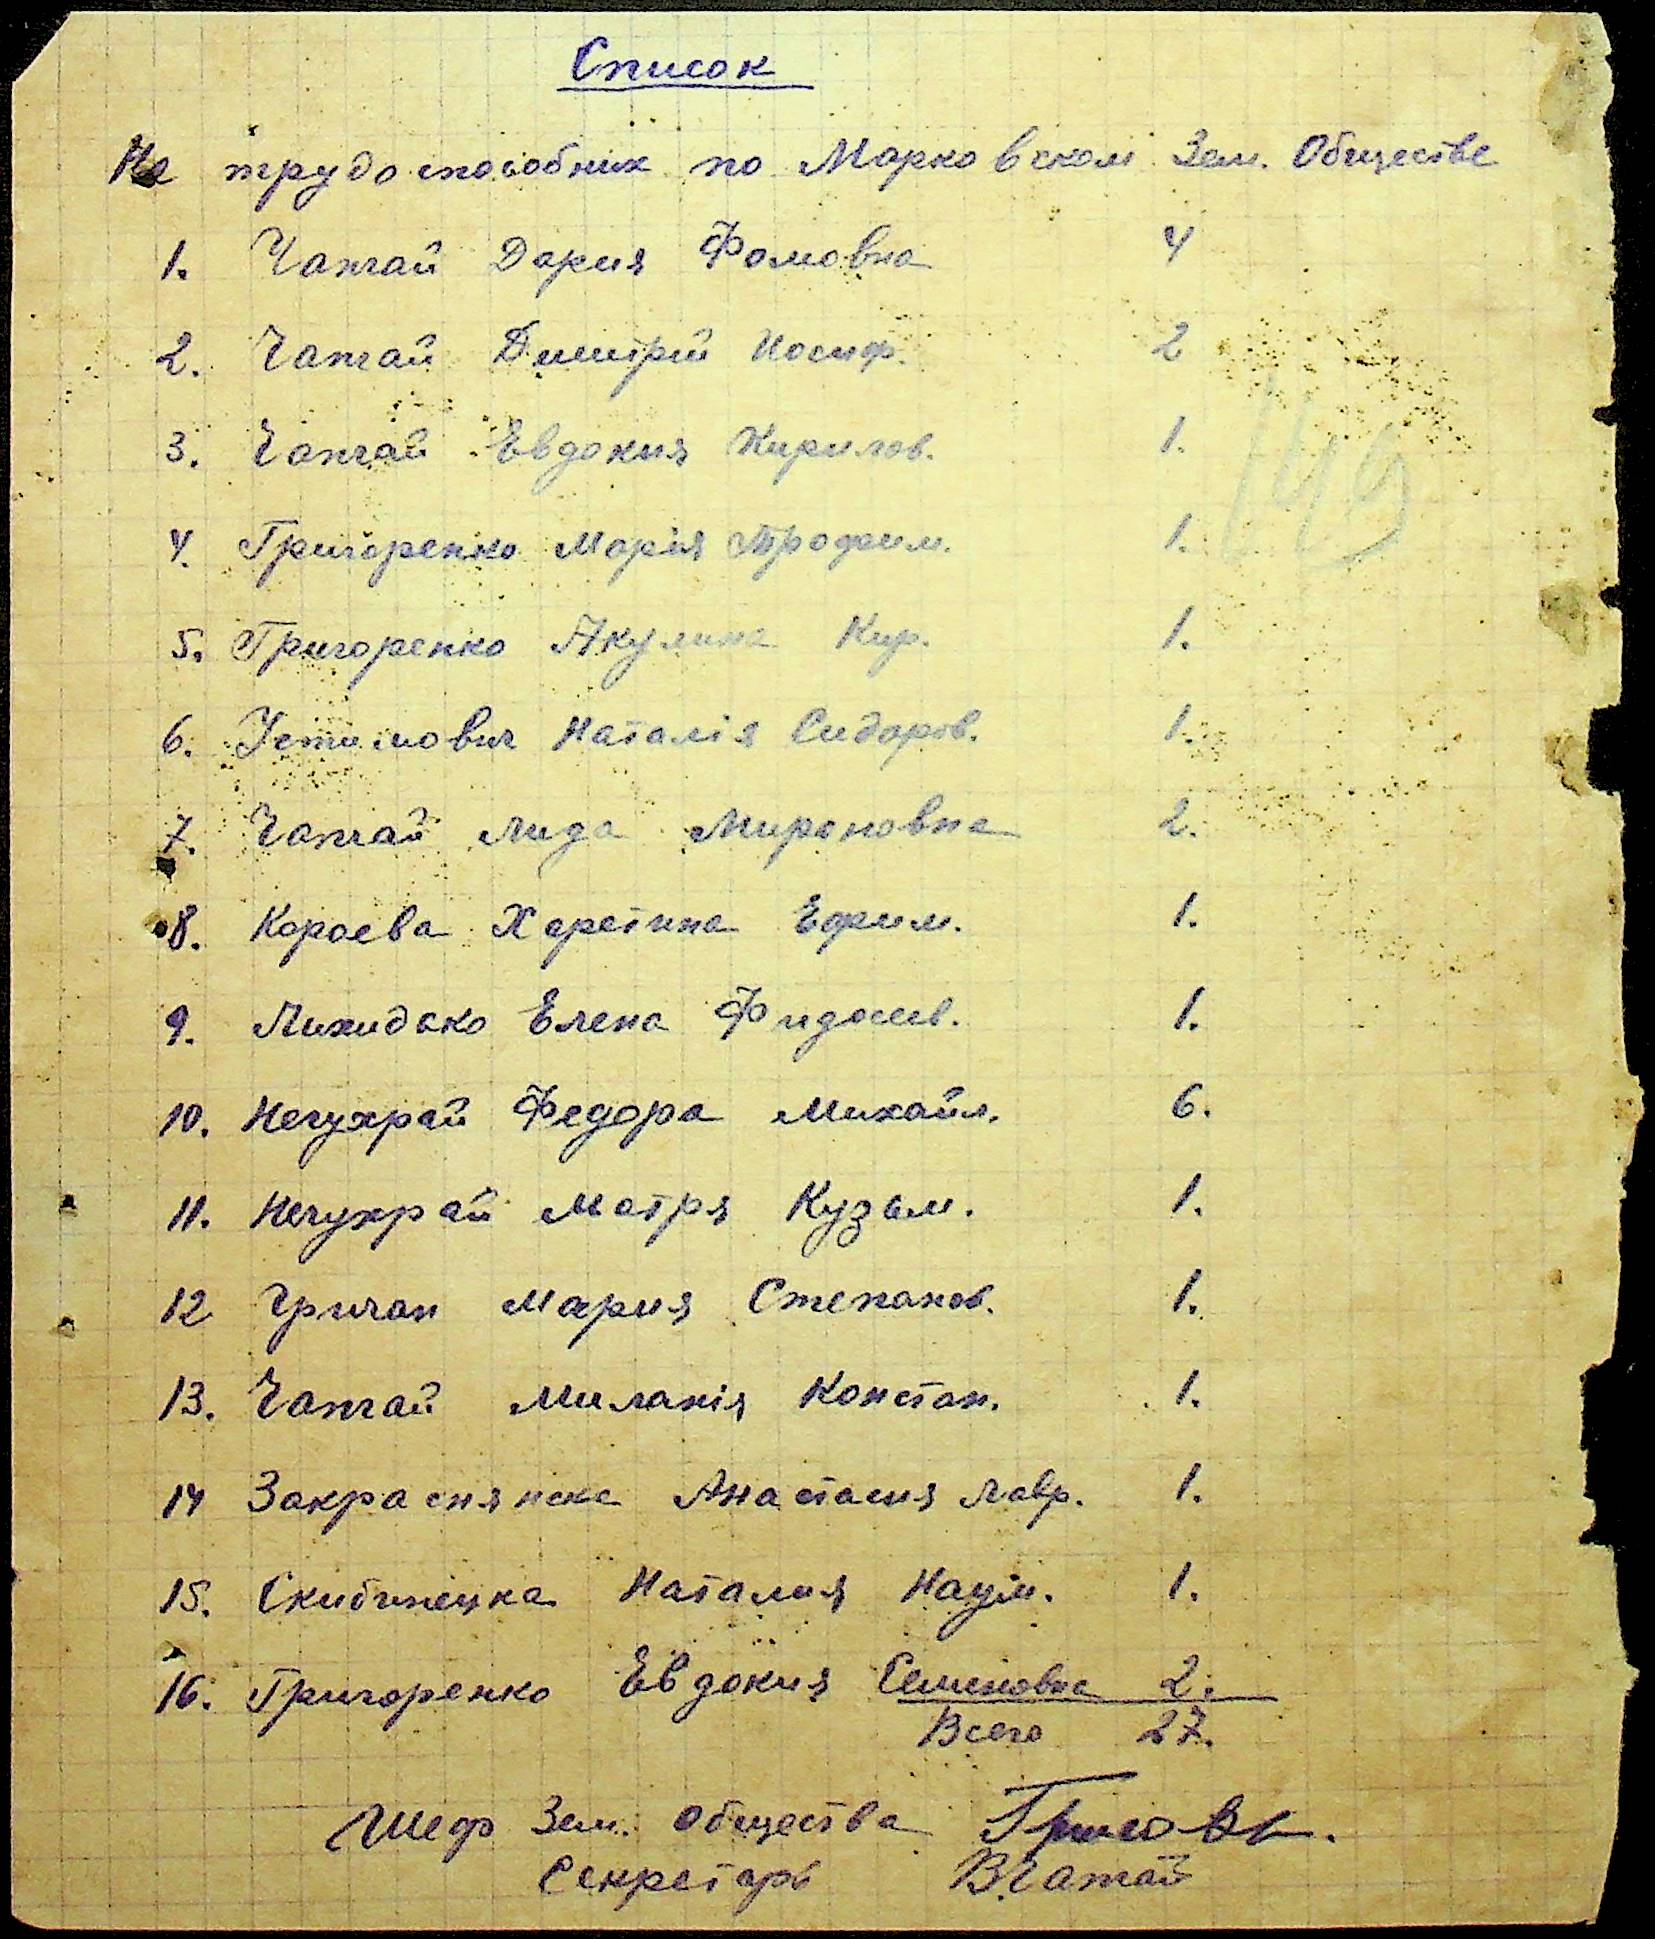 Список
Не трудоспособних по Марковском Зем. Обществе
1. Чапчай Дария Фомовна 4
2. Чапчай Димитрій Иосиф. 2
3. Чапчай Евдокия Кирилов. 1.
4. Григоренко Марія Трофим. 1.
5. Григоренко Акулина Кир. 1.
6. Устимович Наталія Сидоров. 1.
7. Чапчай Лида Мироновна 2.
8. Короева Харетина Ефим. 1.
9. Лихидако Елена Фидосев. 1.
10. Нечухрай Федора Михайл. 6.
11. Нечухрай Мотря Кузьм. 1.
12 Гричан Мария Степанов. 1.
13. Чапчай Миланія Констан. 1.
14 Закраснянска Анастасия Лавр. 1.
15. Скибинецка Наталия Наум. 1.
16. Григоренко Евдокия Семеновна 2.
Всего 27.
Шеф Зем. Общества
Секретарь
149